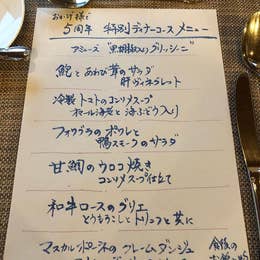 おかげ様で
5周年 特別ディナーコース メニュー
アミューズ "黒胡椒入りグリッシーニ"
鮑とあわび茸のサラダ
肝ヴィネグレット
冷製トマトのコンソメスープ
オマール海老と海ぶどう入り
フォワグラのポワレと
鴨スモークのサラダ
甘鯛のウロコ焼き
コンソメスープ仕立て
和牛ロースのグリエ
とうもろこしとトリュフと共に
マスカルポーネのクレームダンジュ
食後の